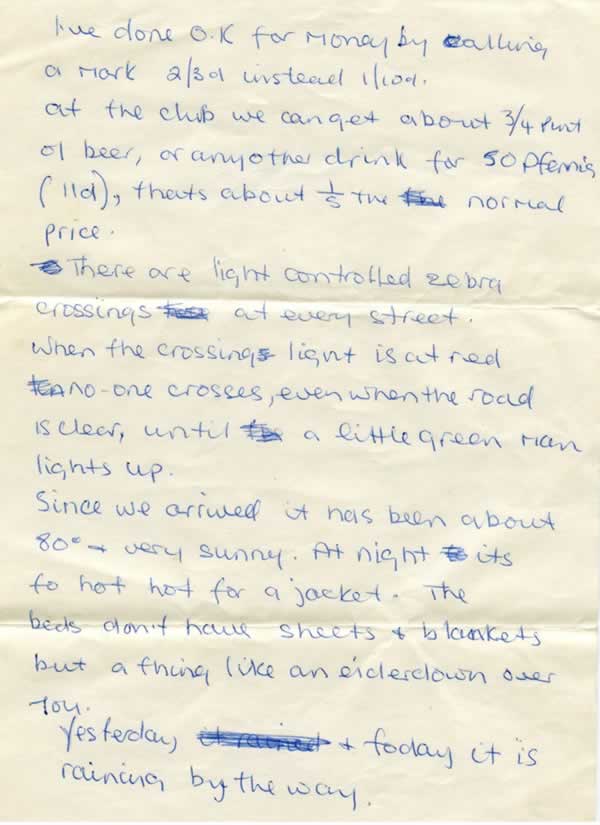 I've done O.K for money by calling
a mark 2/3d instead 1/10d.
at the club we can get about 3/4 pint
of beer, or anyother drink for 50 Pfennig
(11d), thats about 1/5 the normal
price.
There are light controlled zebra
crossings at every street.
When the crossings light is at red
no-one crosses, even when the road
is clear, until a little green man
lights up.
Since we arrived it has been about
80° + very sunny. At night its
to hot hot for a jacket. The
beds don't have sheets + blankets
but a thing like an eiderdown over
you.
Yesterday it rained + today it is
raining by the way.